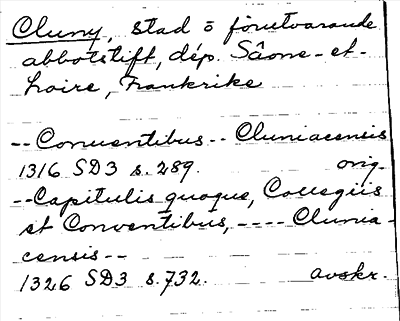 Cluny, stad o förutvarande
abbotstift, dép. Sâone-et-
Loire, Frankrike
--Conventibus-- Cluniacensis
1316 SD3 s. 289. orig.
--Capitulis quoque, Collegiis
et Conventibus, ---- Clunia-
censis--
1326 SD3 s. 732. avskr.